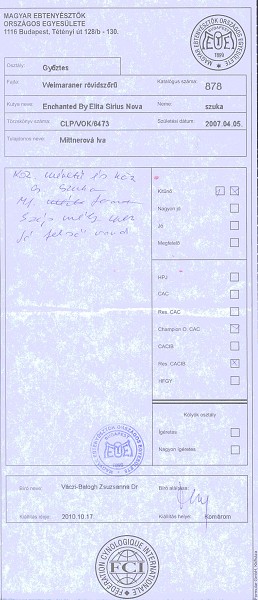 MAGYAR EBTENYÉSZTŐK
ORSZÁGOS EGYESÜLETE
1116 Budapest, Tétényi út 128/b - 130.
MAGYAR EBTENYÉSZTŐK ORSZÁGOS EGYESÜLETE
1899
Osztály: Győztes
Fajta: Weimaraner rövidszőrű
Katalógus száma: 878
Kutya neve: Enchanted By Elita Sirius Nova
Neme: szuka
Törzskönyv száma: CLP/VOK/8473
Születési dátum: 2007.04.05.
Tulajdonos neve: Mittnerová Iva
szuka
Kitűnő 1
Nagyon jó
Jó
Megfelelő
HPJ
CAC
Res. CAC
Champion O. CAC
CACIB
Res. CACIB
HFGY
Kölyök osztály
Ígéretes
Nagyon ígéretes
Bíró neve: Váczi-Balogh Zsuzsanna Dr
Bíró aláírása:
Kiállítás ideje: 2010.10.17.
Kiállítás helye: Komárom
FEDERATION CYNOLOGIQUE INTERNATIONALE
FCI